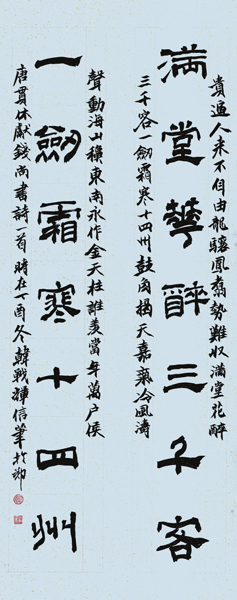 貴逼人来不自由龍驤鳳翥勢難收满堂花醉
满堂華醉三千客
三千客一劒霜寒十四州鼓角揭天嘉氣冷風濤
聲動海山秋東南永作金天柱誰羨當年萬户侯
一劒霜寒十四州
唐貫休獻錢尚書詩一首時在丁酉冬韓戰揮信筆於鄭